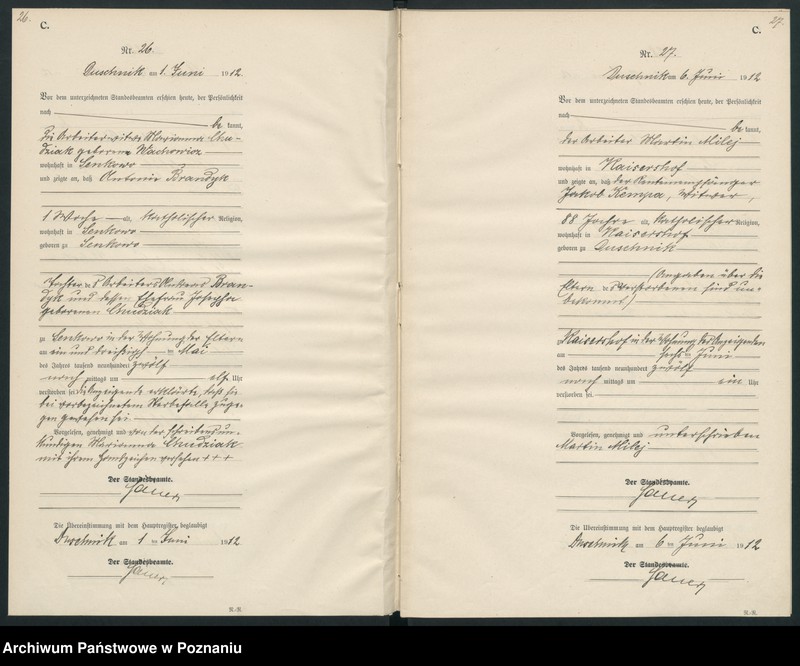 26.
C.
Nr. 26
Duschnik am 1. Juni 1912
Vor dem unterzeichneten Standesbeamten erschien heute, der Persönlichkeit
nach
be kannt,
die Arbeiterwitwe Marianna Chu-
dziak geborene Wachowicz
wohnhaft in Senkowo
und zeigte an, daß Antonie Brandyk
1 Woche alt, katholischer Religion,
wohnhaft in Senkowo
geboren zu Senkowo
Tochter des Arbeiters Bran-
dyk und dessen Ehefrau Josepha
geborenen Chudziak
zu Senkowo in der Wohnung der Eltern
am ein und dreißigsten Mai
des Jahres tausend neunhundert zwölf
nach mittags um elf Uhr
verstorben sei die Anzeigende erklärte, daß sie
bei vorbezeichnetem Sterbefalle zuge-
gen gewesen sei
Vorgelesen, genehmigt und von der Schreibens un-
kundigen Marianna Chudziak
mit ihrem Handzeichen versehen +++
Der Standesbeamte.
Die Übereinstimmung mit dem Hauptregister beglaubigt
Duschnik am 1 ten Juni 1912
Der Standesbeamte.
R.-R.
27.
C.
Nr. 27.
Duschnik am 6. Juni 1912
Vor dem unterzeichneten Standesbeamten erschien heute, der Persönlichkeit
nach
be kannt,
der Arbeiter Martin Milej
wohnhaft in Kaisershof
und zeigte an, daß der Rentenempfänger
Jakob Kempa, Witwer,
88 Jahre alt, katholischer Religion,
wohnhaft in Kaisershof
geboren zu Duschnik
(Angaben über die
Eltern des Verstorbenen sind un-
bekannt)
Kaisershof in der Wohnung des Anzeigenden
am sechsten Juni
des Jahres tausend neunhundert zwölf
nach mittags um ein Uhr
verstorben sei
Vorgelesen, genehmigt und unterschrieben
Martin Milej
Der Standesbeamte.
Die Übereinstimmung mit dem Hauptregister beglaubigt
Duschnik am 6 ten Juni 1912
Der Standesbeamte.
R.-R.
Archiwum Państwowe w Poznaniu